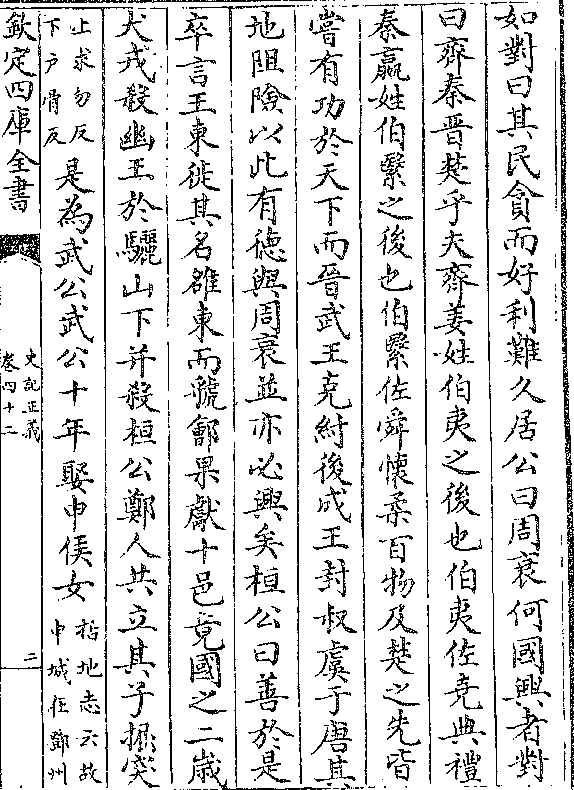 如對曰其民貪而好利難久居公曰周衰何國興者對
曰齊秦晉楚乎夫齊姜姓伯夷之後也伯夷佐堯典禮
秦嬴姓伯繄之後也伯繄佐舜懷柔百物及楚之先皆
嘗有功於天下而晉武王克紂後成王封叔虞于唐其
地阻險以此有德與周衰並亦必興矣桓公曰善於是
卒言王東徙其名雒東而虢鄶果獻十邑竟國之二歲
犬戎殺幽王於驪山下并殺桓公鄭人共立其子掘突
上求勿反
下户骨反
是為武公武公十年娶申侯女
括地志云故
申城在鄧州
欽定四庫全書
史記正義
卷四十二
二